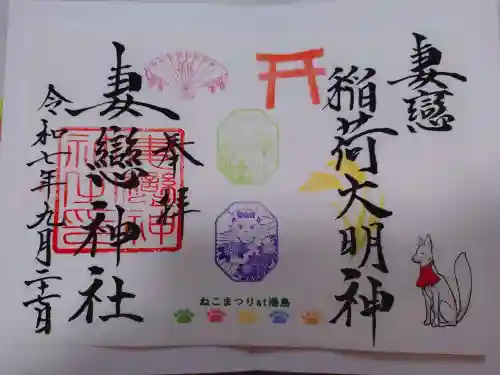 妻戀
稲荷大明神
奉拝
妻戀神社
令和七年九月二十二日
ねこまつりat湯島